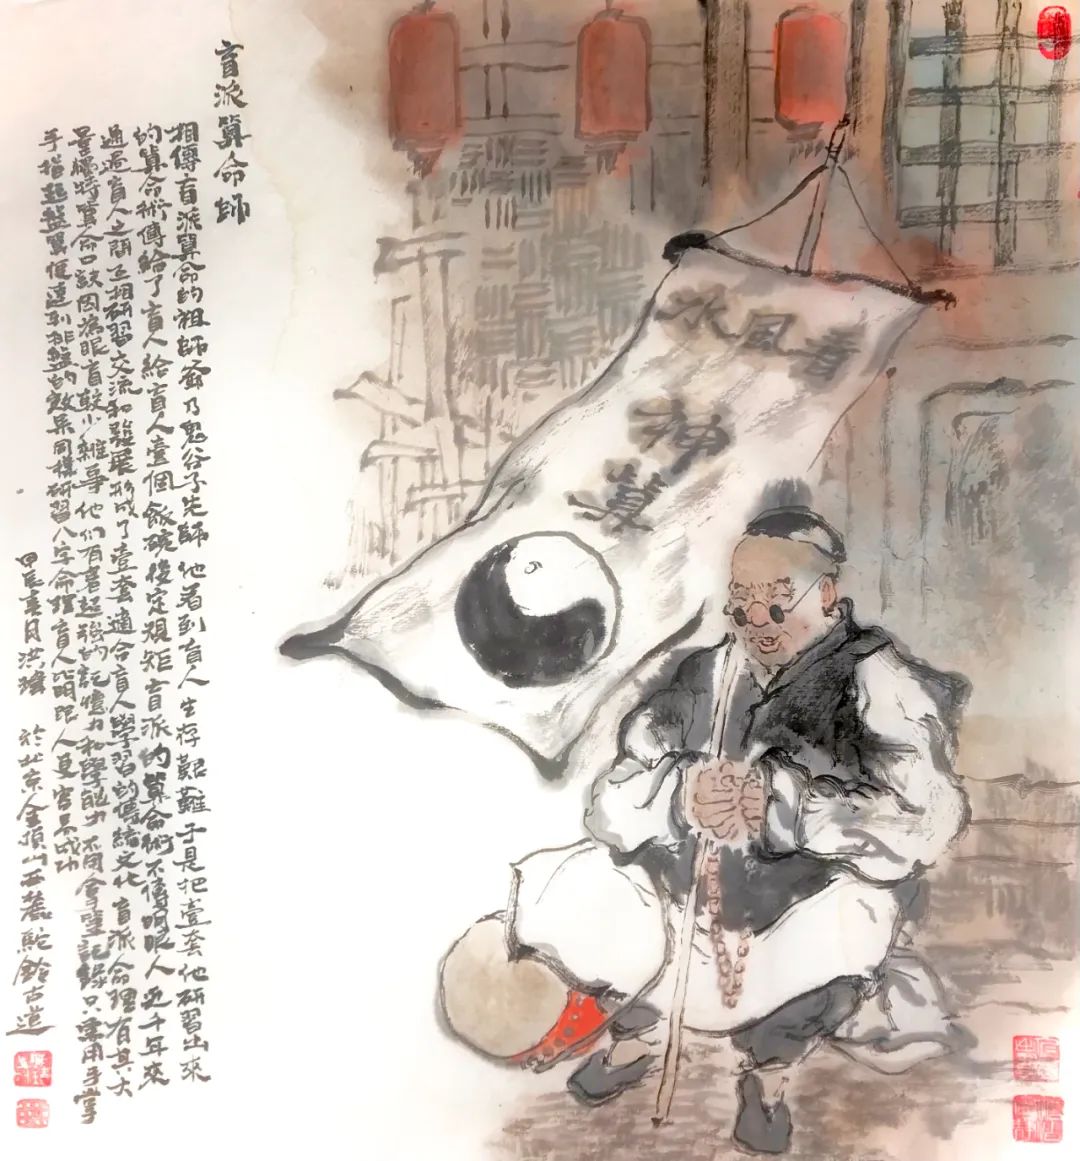 盲派算命師
相傳盲派算命的祖師爺乃鬼谷子先師他看到盲人生存艱難于是把壹套他研習出來
的算命術傳給了盲人給盲人壹個飯碗後定規矩盲派的算命術不傳明眼人近千年來
通過盲人之間互相研習交流和發展形成了壹套適合盲人學習的傳統文化盲派命理有其大
量獨特算命口訣因為眼盲較少雜事他們有着超強的記憶力和學能力不用拿筆記錄只需用手掌
手指起盤算便達到排盤的效果同樣研習八字命理盲人明眼人更容易成功
甲辰春月洪 於北京金頂山西麓駝鈴古道
看風水
神算